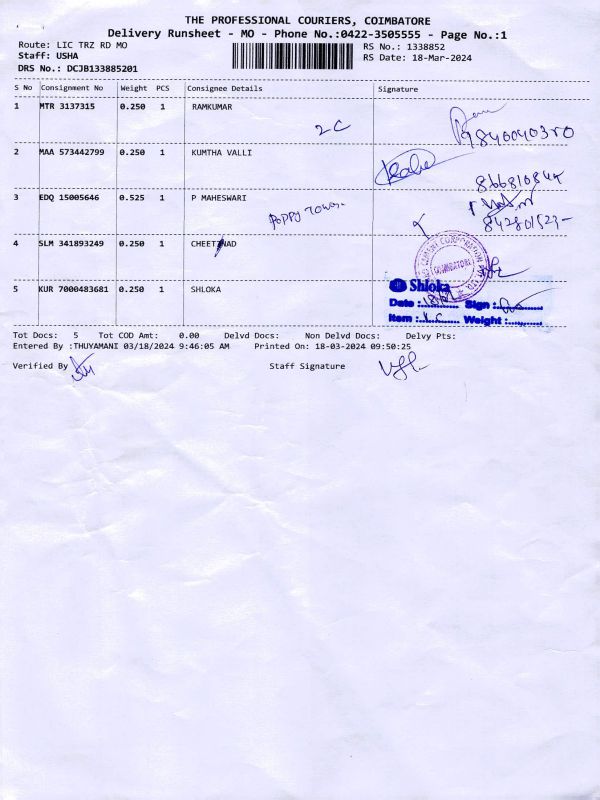 THE PROFESSIONAL COURIERS, COIMBATORE
Delivery Runsheet - MO - Phone No.:0422-3505555 - Page No.:1
Route: LIC TRZ RD MO RS No.: 1338852
Staff: USHA RS Date: 18-Mar-2024
DRS No.: DCJB133885201
S No Consignment No Weight PCS Consignee Details Signature
1 MTR 3137315 0.250 1 RAMKUMAR
2C 9840040370
2 MAA 573442799 0.250 1 KUMTHA VALLI
3 EDQ 15005646 0.525 1 P MAHESWARI
POPPY TOWER
4 SLM 341893249 0.250 1 CHEETINAD
COIMBATORE
5 KUR 7000483681 0.250 1 SHLOKA
Shloka
Date : Sign :
Item : Weight :
Tot Docs: 5 Tot COD Amt: 0.00 Delvd Docs: Non Delvd Docs: Delvy Pts:
Entered By :THUYAMANI 03/18/2024 9:46:05 AM Printed On: 18-03-2024 09:50:25
Verified By Staff Signature